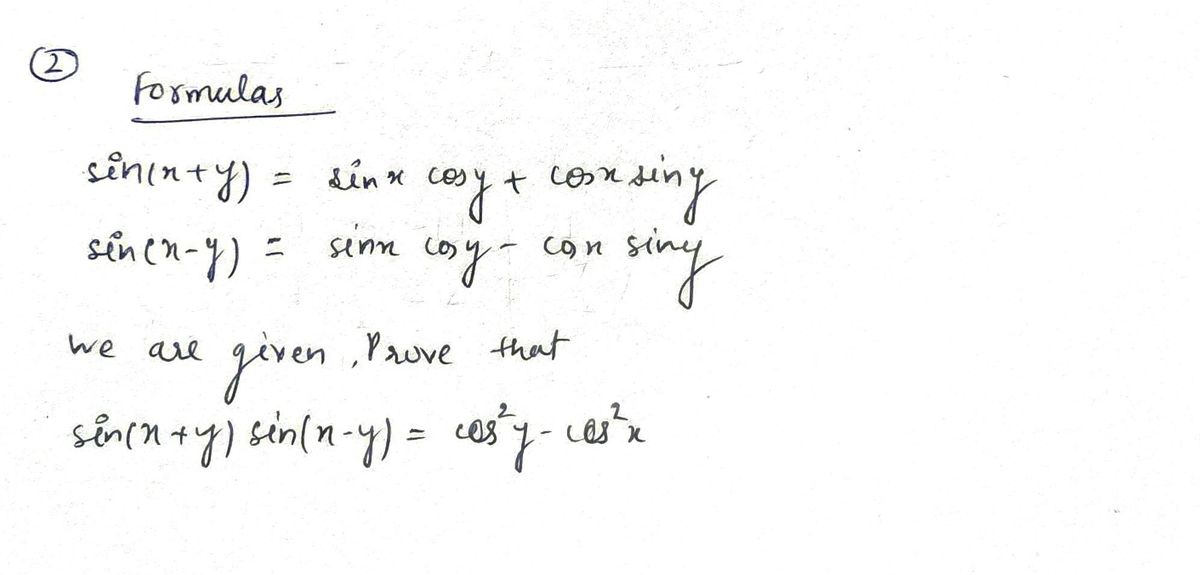 ②
Formulas
sin(x+y) = sin x cos y + cos x sin y
sin(x-y) = sin x cos y - cos x sin y
We are given, Prove that
sin(x+y) sin(x-y) = cos²y - cos²x